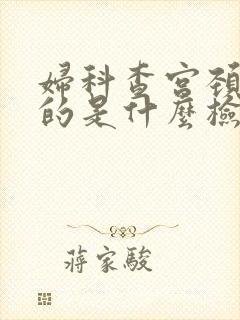 婦科查宮頸
的是什麼檢
蔣家駿